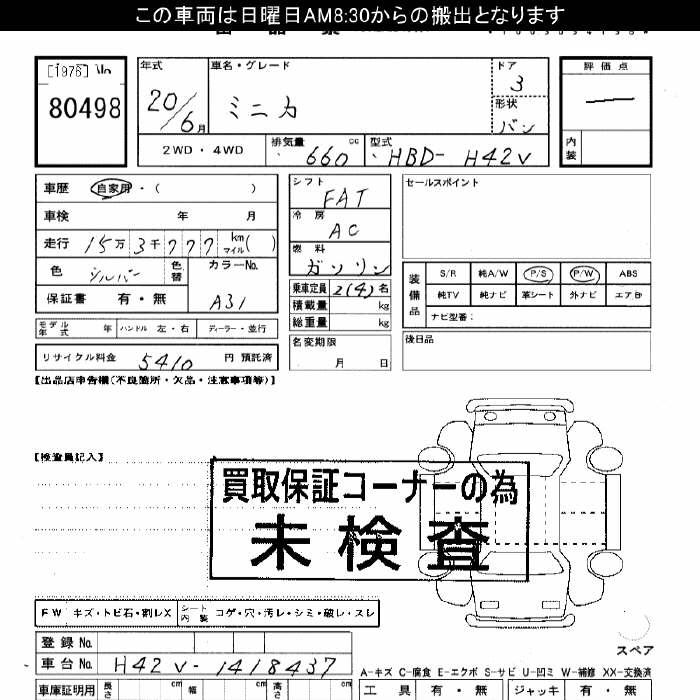 この車両は日曜日AM8:30からの搬出となります
[1976] No
80498
年式
20/6月
車名・グレード
ミニカ
ドア
3
形状
バン
評価点
内装
2WD・4WD
排気量 660 cc
型式 HBD-H42V
車歴 自家用・( )
車検 年 月
走行 15万3千777 km マイル( )
色 シルバー 色替
カラーNo. A31
保証書 有・無
モデル年式 年 ハンドル 左・右 ディーラー・並行
リサイクル料金 5410 円 預託済
シフト FAT
冷房 AC
燃料 ガソリン
乗車定員 2(4)名
積載量 kg
総重量 kg
名変期限
月 日
セールスポイント
装備品
S/R 純A/W P/S P/W ABS
純TV 純ナビ 革シート 外ナビ エアB
ナビ型番:
後日品
【出品店申告欄(不良箇所・欠品・注意事項等)】
【検査員記入】
買取保証コーナーの為
未検査
FW キズ・トビ石・割レX シート内装 コゲ・穴・汚レ・シミ・破レ・スレ
登録No.
車台No. H42V-1418437
車庫証明用 長さ cm 幅 cm 高さ cm
スペア
A-キズ C-腐食 E-エクボ S-サビ U-凹ミ W-補修 XX-交換済
工具 有・無 ジャッキ 有・無